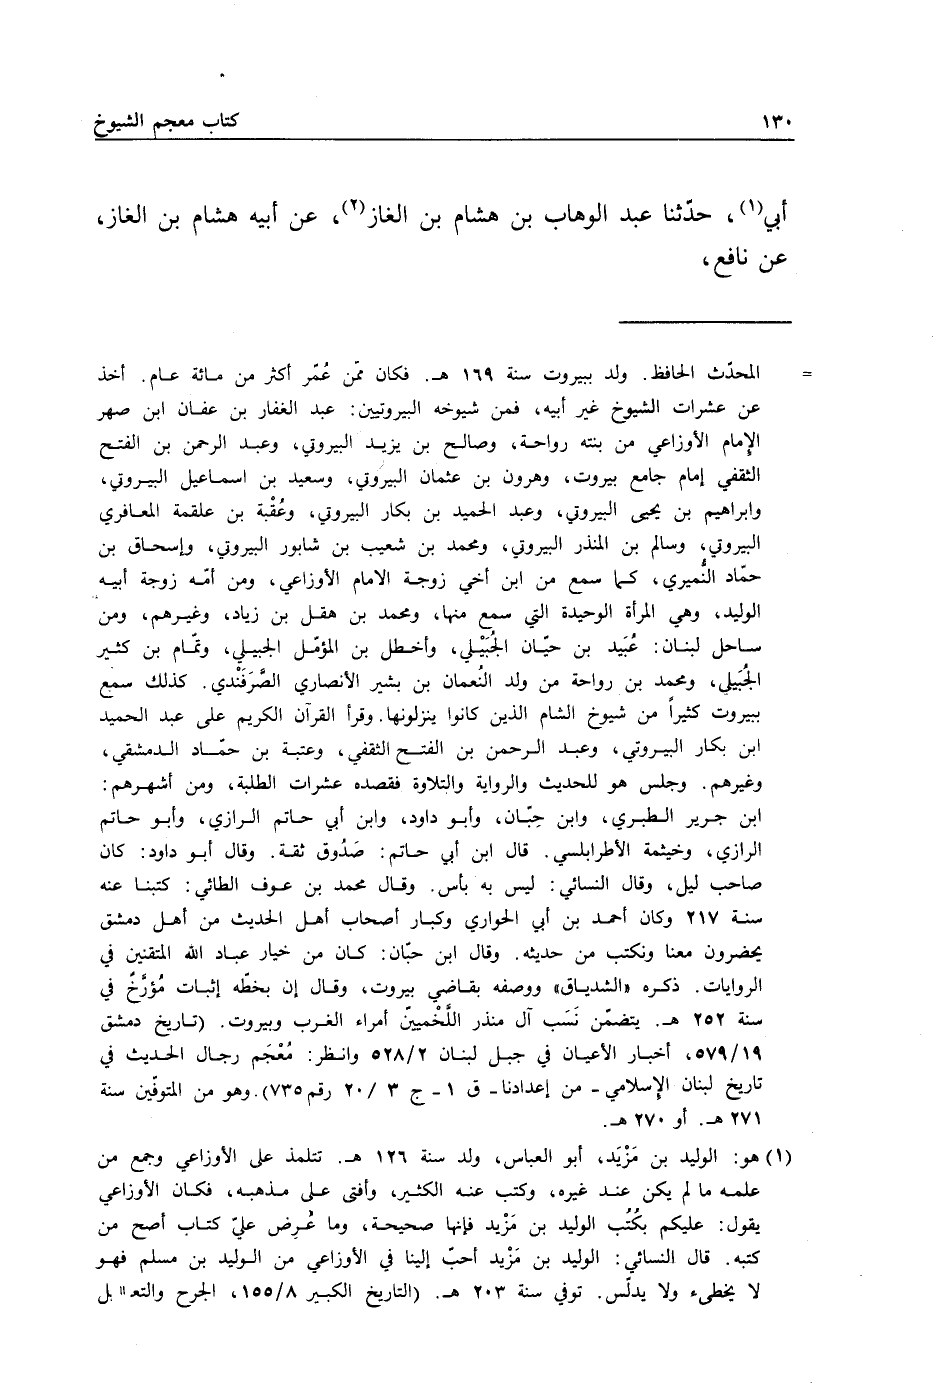 ١٣٠ كتاب معجم الشيوخ
أبي(١)، حدّثنا عبد الوهاب بن هشام بن الغاز(٢)، عن أبيه هشام بن الغاز،
عن نافع،
= المحدّث الحافظ. ولد ببيروت سنة ١٦٩ هـ. فكان ممّن عُمّر أكثر من مائة عام. أخذ
عن عشرات الشيوخ غير أبيه، فمن شيوخه البيروتيين: عبد الغفار بن عفان ابن صهر
الإمام الأوزاعي من بنته رواحة، وصالح بن يزيد البيروتي، وعبد الرحمن بن الفتح
الثقفي إمام جامع بيروت، وهرون بن عثمان البيروتي، وسعيد بن اسماعيل البيروتي،
وابراهيم بن يحيى البيروتي، وعبد الحميد بن بكار البيروتي، وعُقْبة بن علقمة المعافري
البيروتي، وسالم بن المنذر البيروتي، ومحمد بن شعيب بن شابور البيروتي، وإسحاق بن
حمّاد النُّميري، كما سمع من ابن أخي زوجة الامام الأوزاعي، ومن أمّه زوجة أبيه
الوليد، وهي المرأة الوحيدة التي سمع منها، ومحمد بن هقل بن زياد، وغيرهم، ومن
ساحل لبنان: عُبَيد بن حيّان الجُبَيْلي، وأخطل بن المؤمّل الجبيلي، وتمّام بن كثير
الجُبَيلي، ومحمد بن رواحة من ولد النُعمان بن بشير الأنصاري الصَّرَفَنْدي. كذلك سمع
ببيروت كثيراً من شيوخ الشام الذين كانوا ينزلونها. وقرأ القرآن الكريم على عبد الحميد
ابن بكار البيروتي، وعبد الرحمن بن الفتح الثقفي، وعتبة بن حمّاد الدمشقي،
وغيرهم. وجلس هو للحديث والرواية والتلاوة فقصده عشرات الطلبة، ومن أشهرهم:
ابن جرير الطبري، وابن حِبّان، وأبو داود، وابن أبي حاتم الرازي، وأبو حاتم
الرازي، وخيثمة الأطرابلسي. قال ابن أبي حاتم: صَدُوق ثقة. وقال أبو داود: كان
صاحب ليل، وقال النسائي: ليس به بأس. وقال محمد بن عوف الطائي: كتبنا عنه
سنة ٢١٧ وكان أحمد بن أبي الحواري وكبار أصحاب أهل الحديث من أهل دمشق
يحضرون معنا ونكتب من حديثه. وقال ابن حبّان: كان من خيار عباد الله المتقنين في
الروايات. ذكره «الشدياق» ووصفه بقاضي بيروت، وقال إن بخطّه إثبات مُؤرَّخ في
سنة ٢٥٢ هـ. يتضمّن نَسَب آل منذر اللَّخْميينّ أمراء الغرب وبيروت. (تاريخ دمشق
٥٧٩/١٩، أخبار الأعيان في جبل لبنان ٥٢٨/٢ وانظر: مُعْجَم رجال الحديث في
تاريخ لبنان الإسلامي - من إعدادنا - ق ١ - ج ٣ / ٢٠ رقم ٧٣٥). وهو من المتوفّين سنة
٢٧١ هـ. أو ٢٧٠ هـ.
(١) هو: الوليد بن مَزْيَد، أبو العباس، ولد سنة ١٢٦ هـ. تتلمذ على الأوزاعي وجمع من
علمه ما لم يكن عند غيره، وكتب عنه الكثير، وأفتى على مذهبه، فكان الأوزاعي
يقول: عليكم بكُتُب الوليد بن مَزْيد فإنها صحيحة، وما عُرض عليّ كتاب أصح من
كتبه. قال النسائي: الوليد بن مَزْيد أحبّ إلينا في الأوزاعي من الوليد بن مسلم فهو
لا يخطىء ولا يدلّس. توفي سنة ٢٠٣ هـ. (التاريخ الكبير ١٥٥/٨، الجرح والتعديل